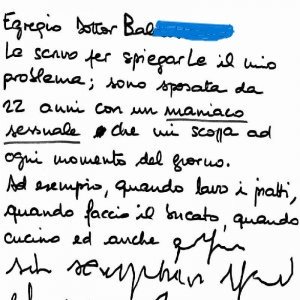 Egregio Dottor Bal
Le scrivo per spiegarLe il mio
problema; sono sposata da
22 anni con un maniaco
sessuale che mi scopa ad
ogni momento del giorno.
Ad esempio, quando lavo i piatti,
quando faccio il bucato, quando
cucino ed anche